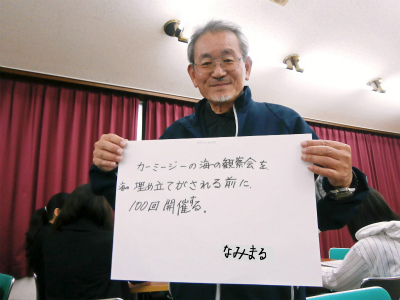 カーミージーの海の観察会を、
毎 埋め立てがされる前に、
100回開催する。
なみまる